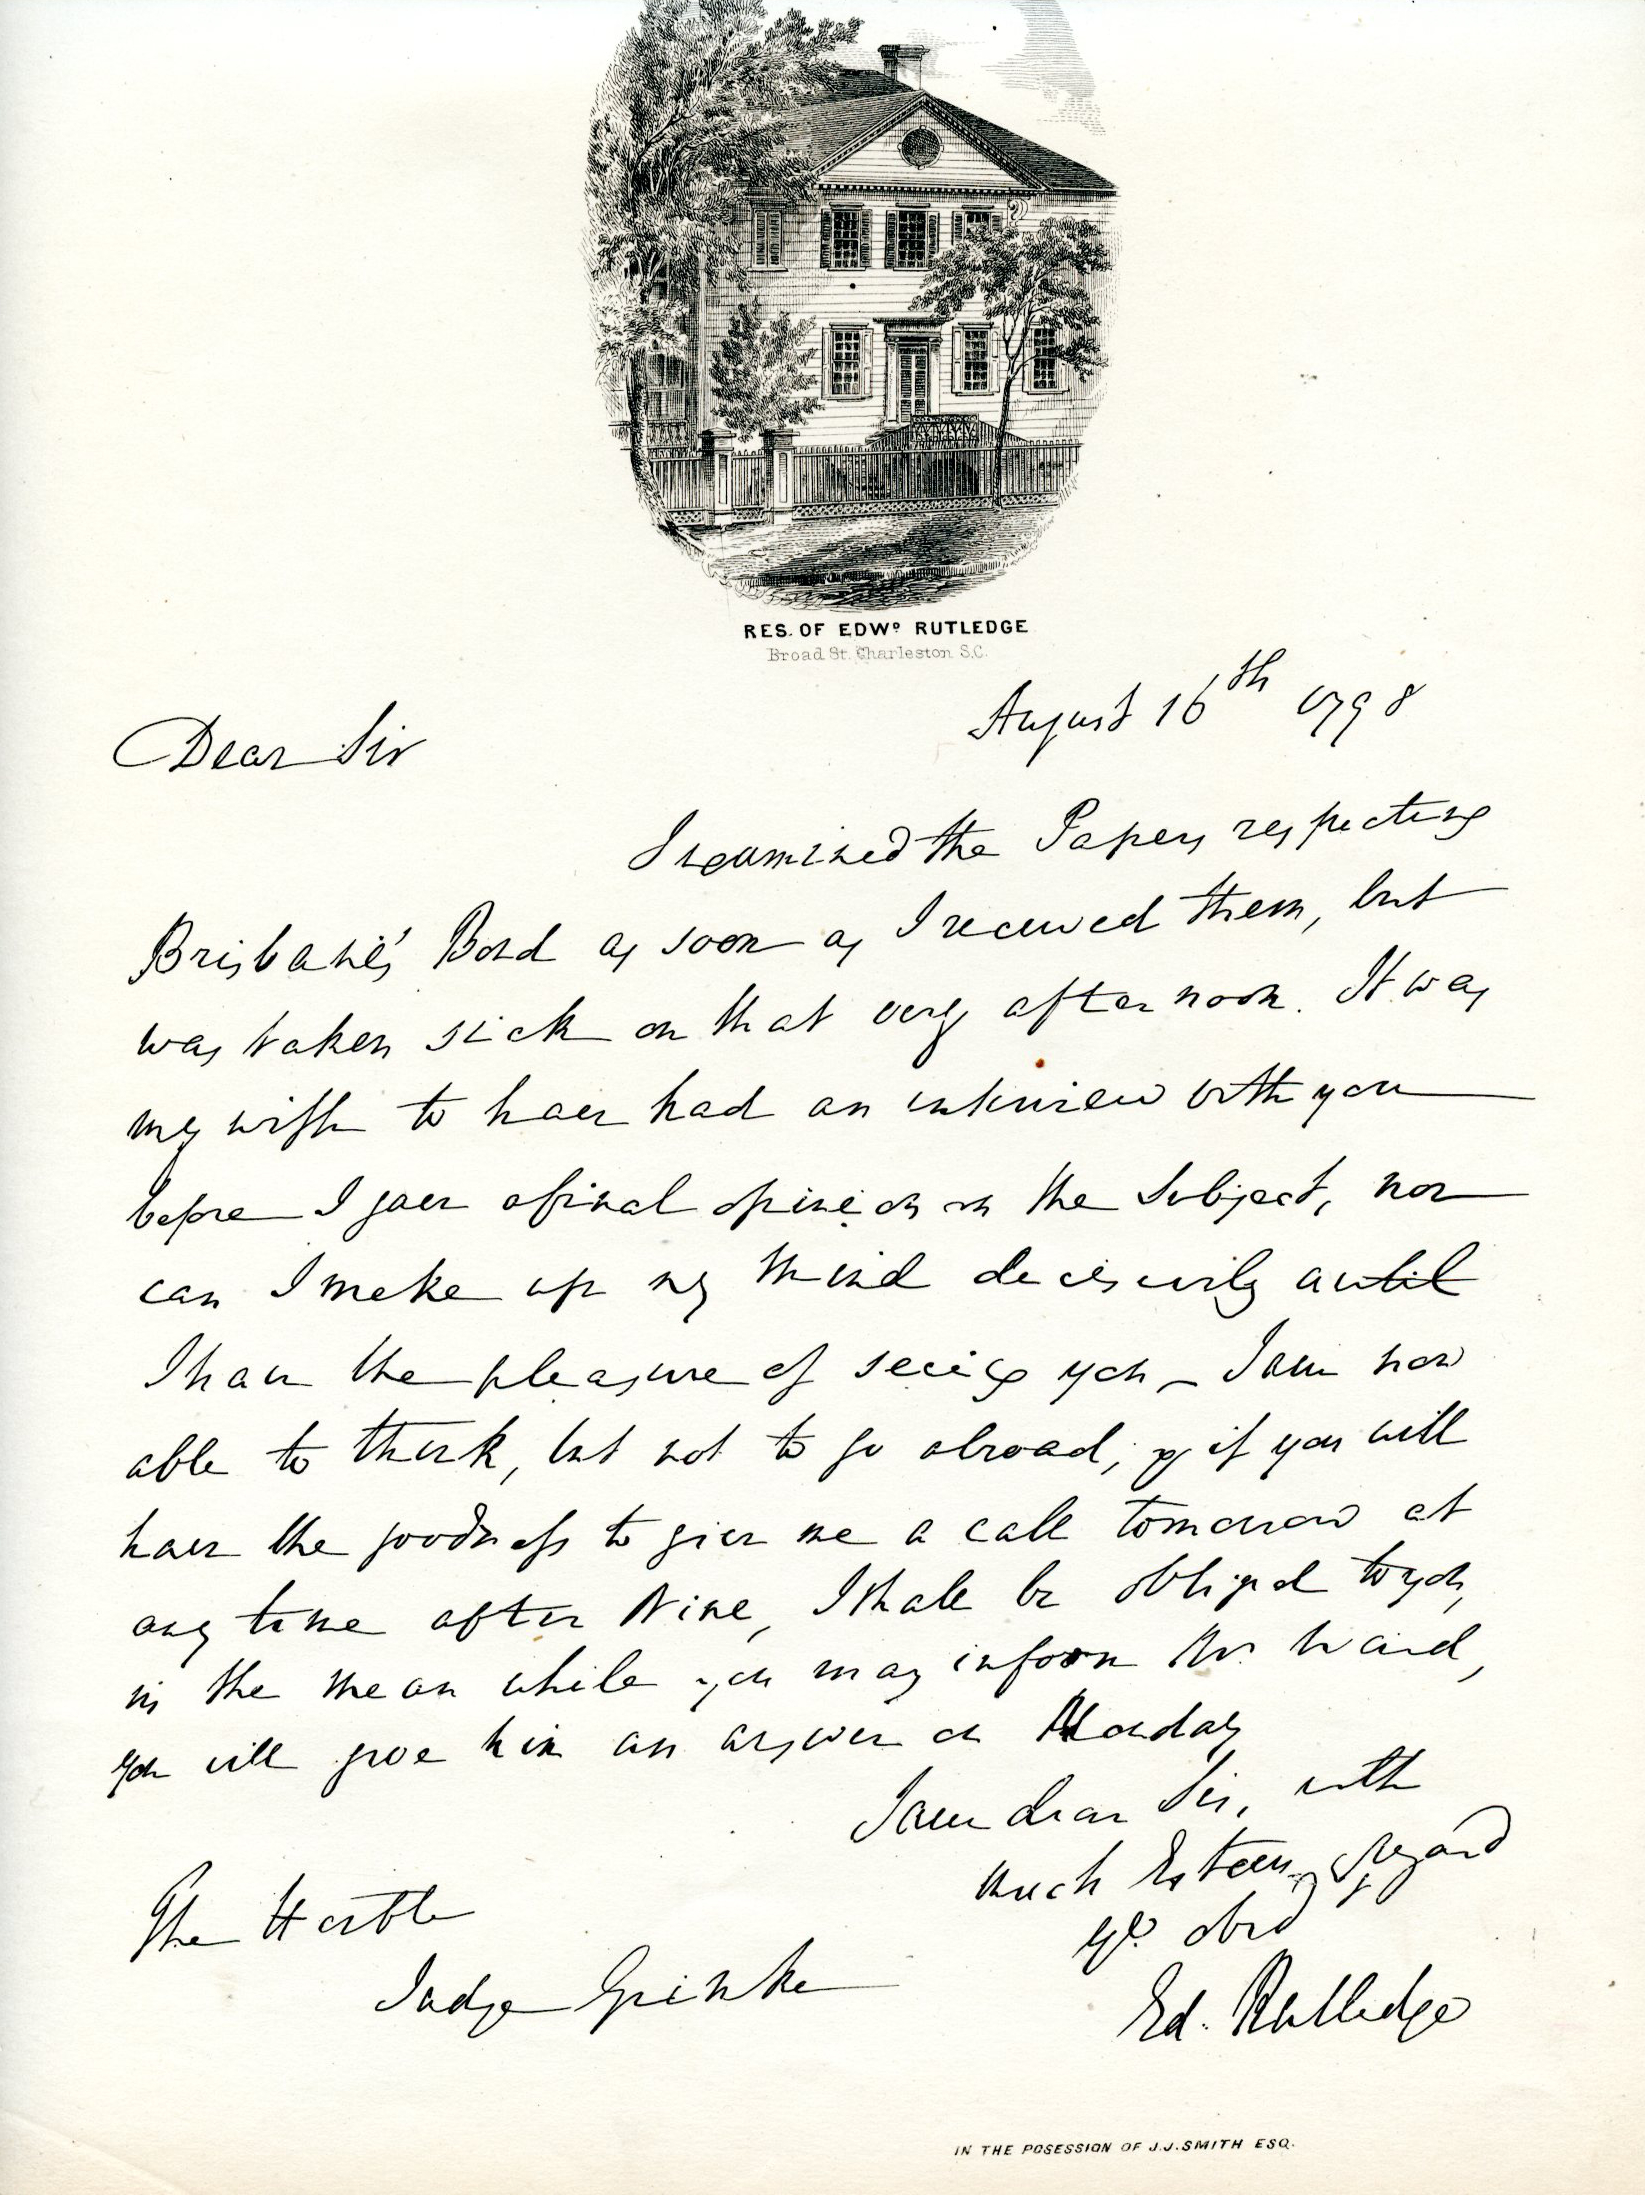 RES. OF EDWD RUTLEDGE
Broad St. Charleston S.C.
August 16th 1798
Dear Sir
I examined the Papers respecting
Brisbane's Bond as soon as I received them, but
was taken sick on that very afternoon. It was
my wish to have had an interview with you
before I gave a final opinion on the Subject, nor
can I make up my Mind decisively until
I have the pleasure of seeing you – I am now
able to think, but not to go abroad, & if you will
have the goodness to give me a call tomorrow at
any time after Nine, I shall be obliged to you,
in the mean while you may inform Mr. Ward,
you will give him an answer on Monday
I am dear Sir, with
much Esteem & regard
yr. obed
Ed. Rutledge
The Honble
Judge Grimke
IN THE POSESSION OF J.J. SMITH ESQ.